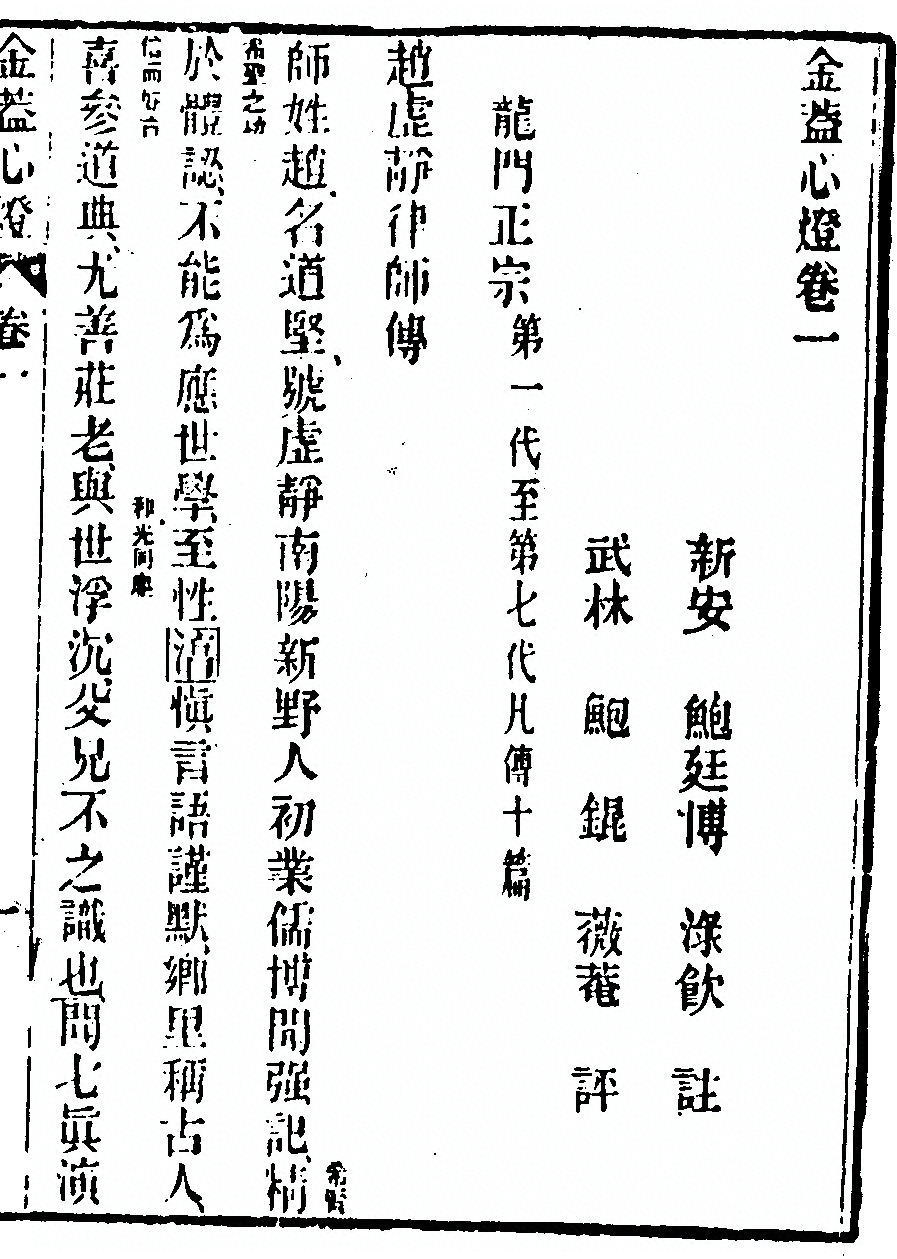 金蓋心燈卷一
新安　鮑廷博　淥飲　註
武林　鮑　錕　薇菴　評
龍門正宗第一代至第七代凡傳十篇
趙虛靜律師傳
師姓趙、名道堅、號虛靜南陽新野人初業儒博聞强記、精
於體認、不能爲應世學、至性、慎言語謹默、鄉里稱古人、
希聖之功
信而好古
喜參道典、尤善莊老、與世浮沉、父兄不之識也、聞七眞演
和光同塵
金蓋心燈
卷一
一